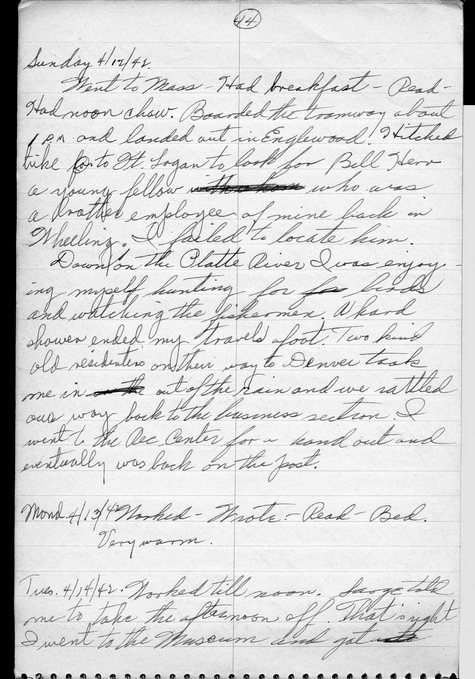 44
Sunday 4/12/42
Went to Mass - Had breakfast - Read -
Had noon chow. Boarded the tramway about
1 PM and landed out in Englewood. Hitched
hike to Ft. Logan to look for Bill Herr
a young fellow who was
a brother employee of mine back in
Wheeling. I failed to locate him.
Down on the Platte River I was enjoy-
ing myself hunting for birds
and watching the fishermen. A hard
shower ended my travels afoot. Two kind
old residenters on their way to Denver took
me in out of the rain and we rattled
our way back to the business section I
went to the Rec. Center for a hand out and
eventually was back on the post.
Mond. 4/13/42 Worked - Wrote - Read - Bed.
Very warm.
Tues. 4/14/42. Worked till noon. Sarge told
me to take the afternoon off. That's right
I went to the Museum and got